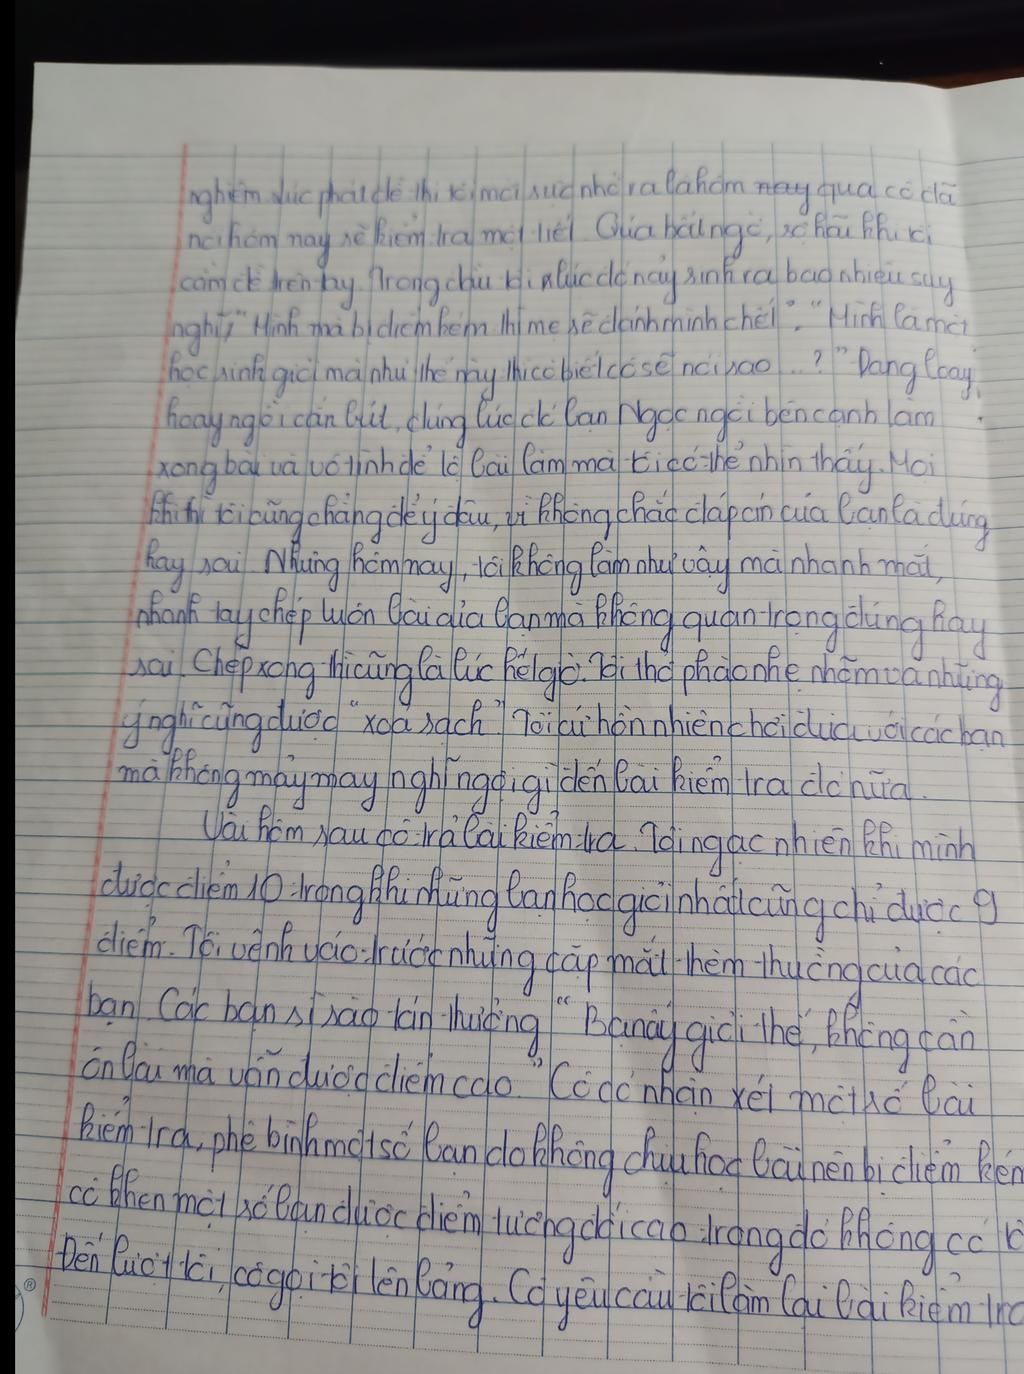 nghiêm túc phát đề thi tôi mới sực nhớ ra là hôm nay qua cô đã
nói hôm nay sẽ kiểm tra một tiết. Quá bất ngờ, sợ hãi khi tôi
cầm đề trên tay. Trong đầu tôi lúc đó nảy sinh ra bao nhiêu suy
nghĩ; "Mình mà bị điểm kém thì mẹ sẽ đánh mình chết", "Mình là một
học sinh giỏi mà như thế này thì cô biết cô sẽ nói sao...?" Đang loay
hoay ngồi cắn bút, đúng lúc đó bạn Ngọc ngồi bên cạnh làm
xong bài và vô tình để lộ bài làm mà tôi có thể nhìn thấy. Mọi
khi thì tôi cũng chẳng để ý đâu, vì không chắc đáp án của bạn là đúng
hay sai. Nhưng hôm nay, tôi không làm như vậy mà nhanh mắt,
nhanh tay chép luôn bài của bạn mà không quan trọng đúng hay
sai. Chép xong thì cũng là lúc hết giờ. Tôi thở phào nhẹ nhõm và những
ý nghĩ cũng được "xoá sạch". Tôi cứ hồn nhiên chơi đùa với các bạn
mà không mảy may nghĩ ngợi gì đến bài kiểm tra đó nữa.
Vài hôm sau cô trả bài kiểm tra. Tôi ngạc nhiên khi mình
được điểm 10 trong khi những bạn học giỏi nhất cũng chỉ được 9
điểm. Tôi vênh váo trước những cặp mắt thèm thuồng của các
bạn. Các bạn sì sào tán thưởng "Bạn ấy giỏi thế, không cần
ôn bài mà vẫn được điểm cao." Cô có nhận xét một số bài
kiểm tra, phê bình một số bạn do không chịu học bài nên bị điểm kém
cô khen một số bạn được điểm tương đối cao trong đó không có
Đến lượt tôi, cô gọi tôi lên bảng. Cô yêu cầu tôi làm lại bài kiểm tra
®